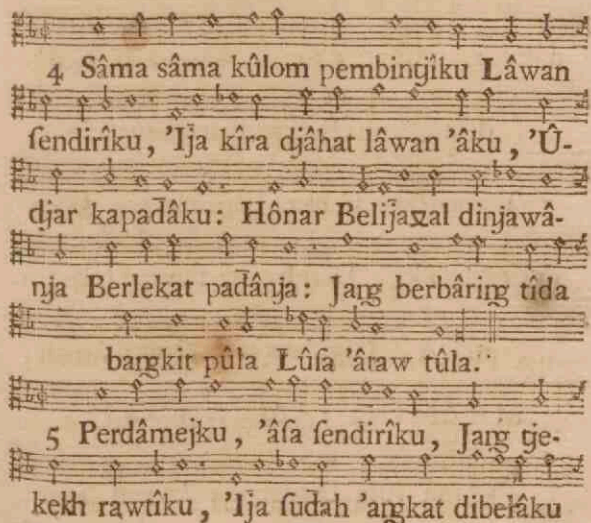 4 Sâma sâma kûlom pembintjîku Lâwan
ſendirîku, 'Ija kîra djâhat lâwan 'âku, 'Û-
djar kapadâku: Hônar Belijaꜿal dinjawâ-
nja Berlekat padânja: Jang berbâring tîda
bangkit pûla Lûſa 'âtaw tûla.
5 Perdâmejku, 'âſa ſendirîku, Jang tje-
kekh rawtîku, 'Ija ſudah 'angkat dibelâku